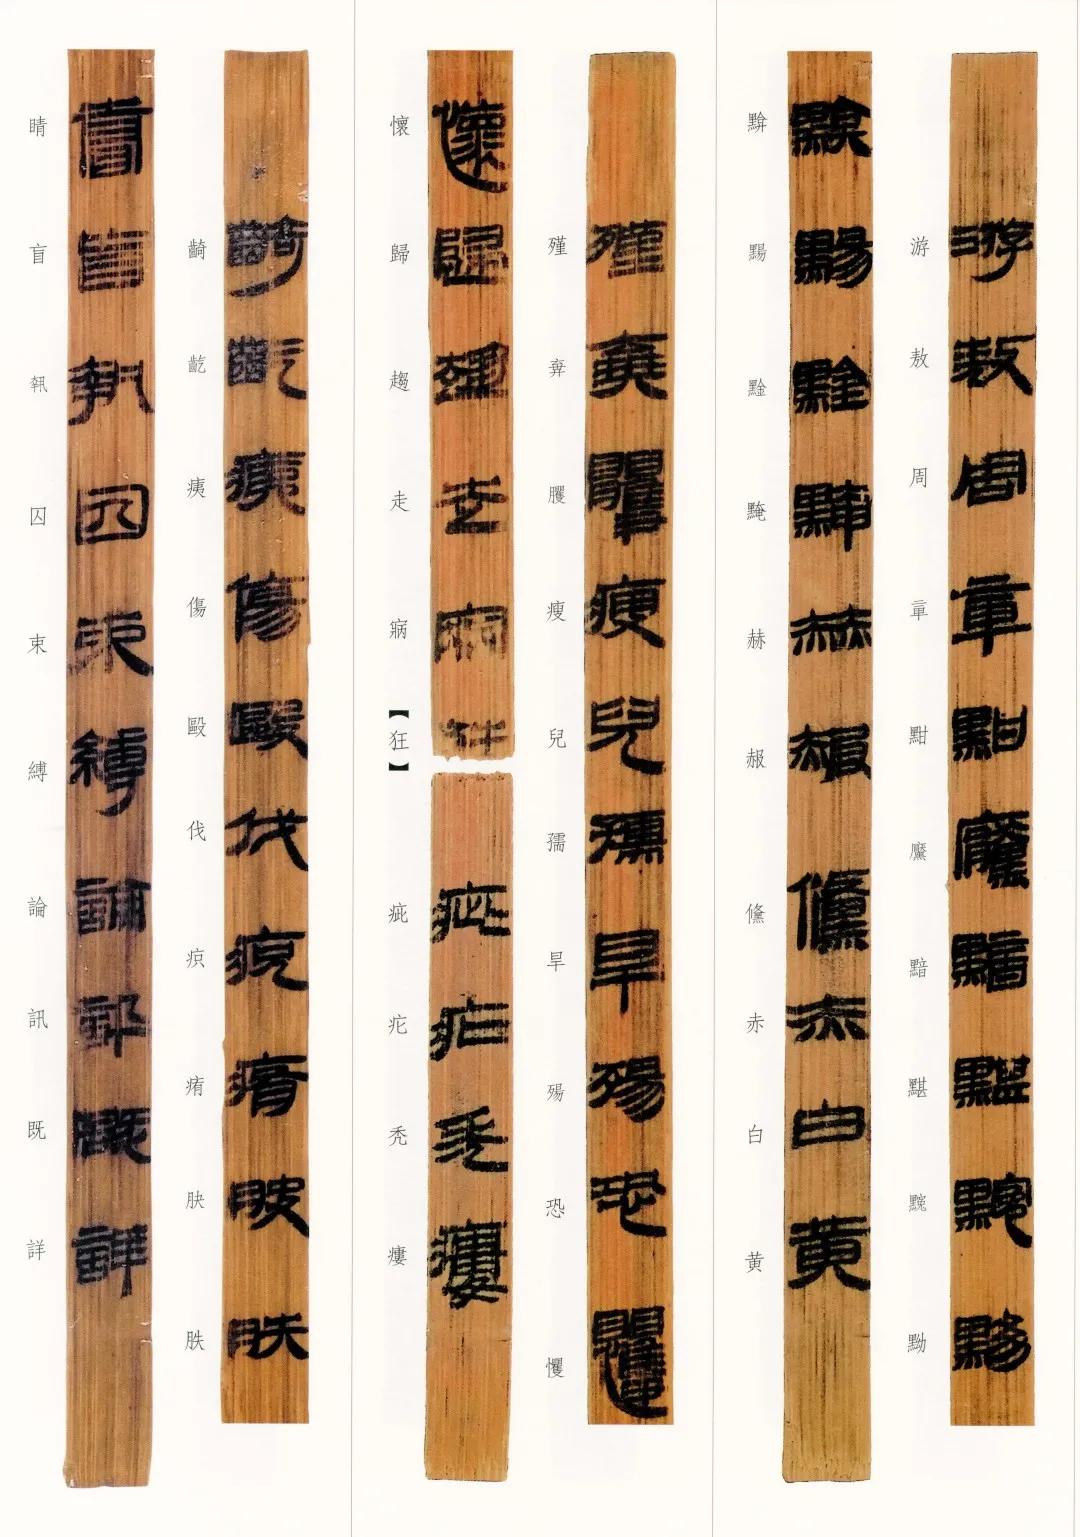 游敖周章黚黶黯黮䵳黝
黭黅赫赧儵赤白黄
殣棄臞瘦兒孺旱殤恐懼
懷歸趨走病【狂】疵疕秃瘻
齮齕痍傷毆伐疻痏胅
睛盲執囚束縛論訊既詳